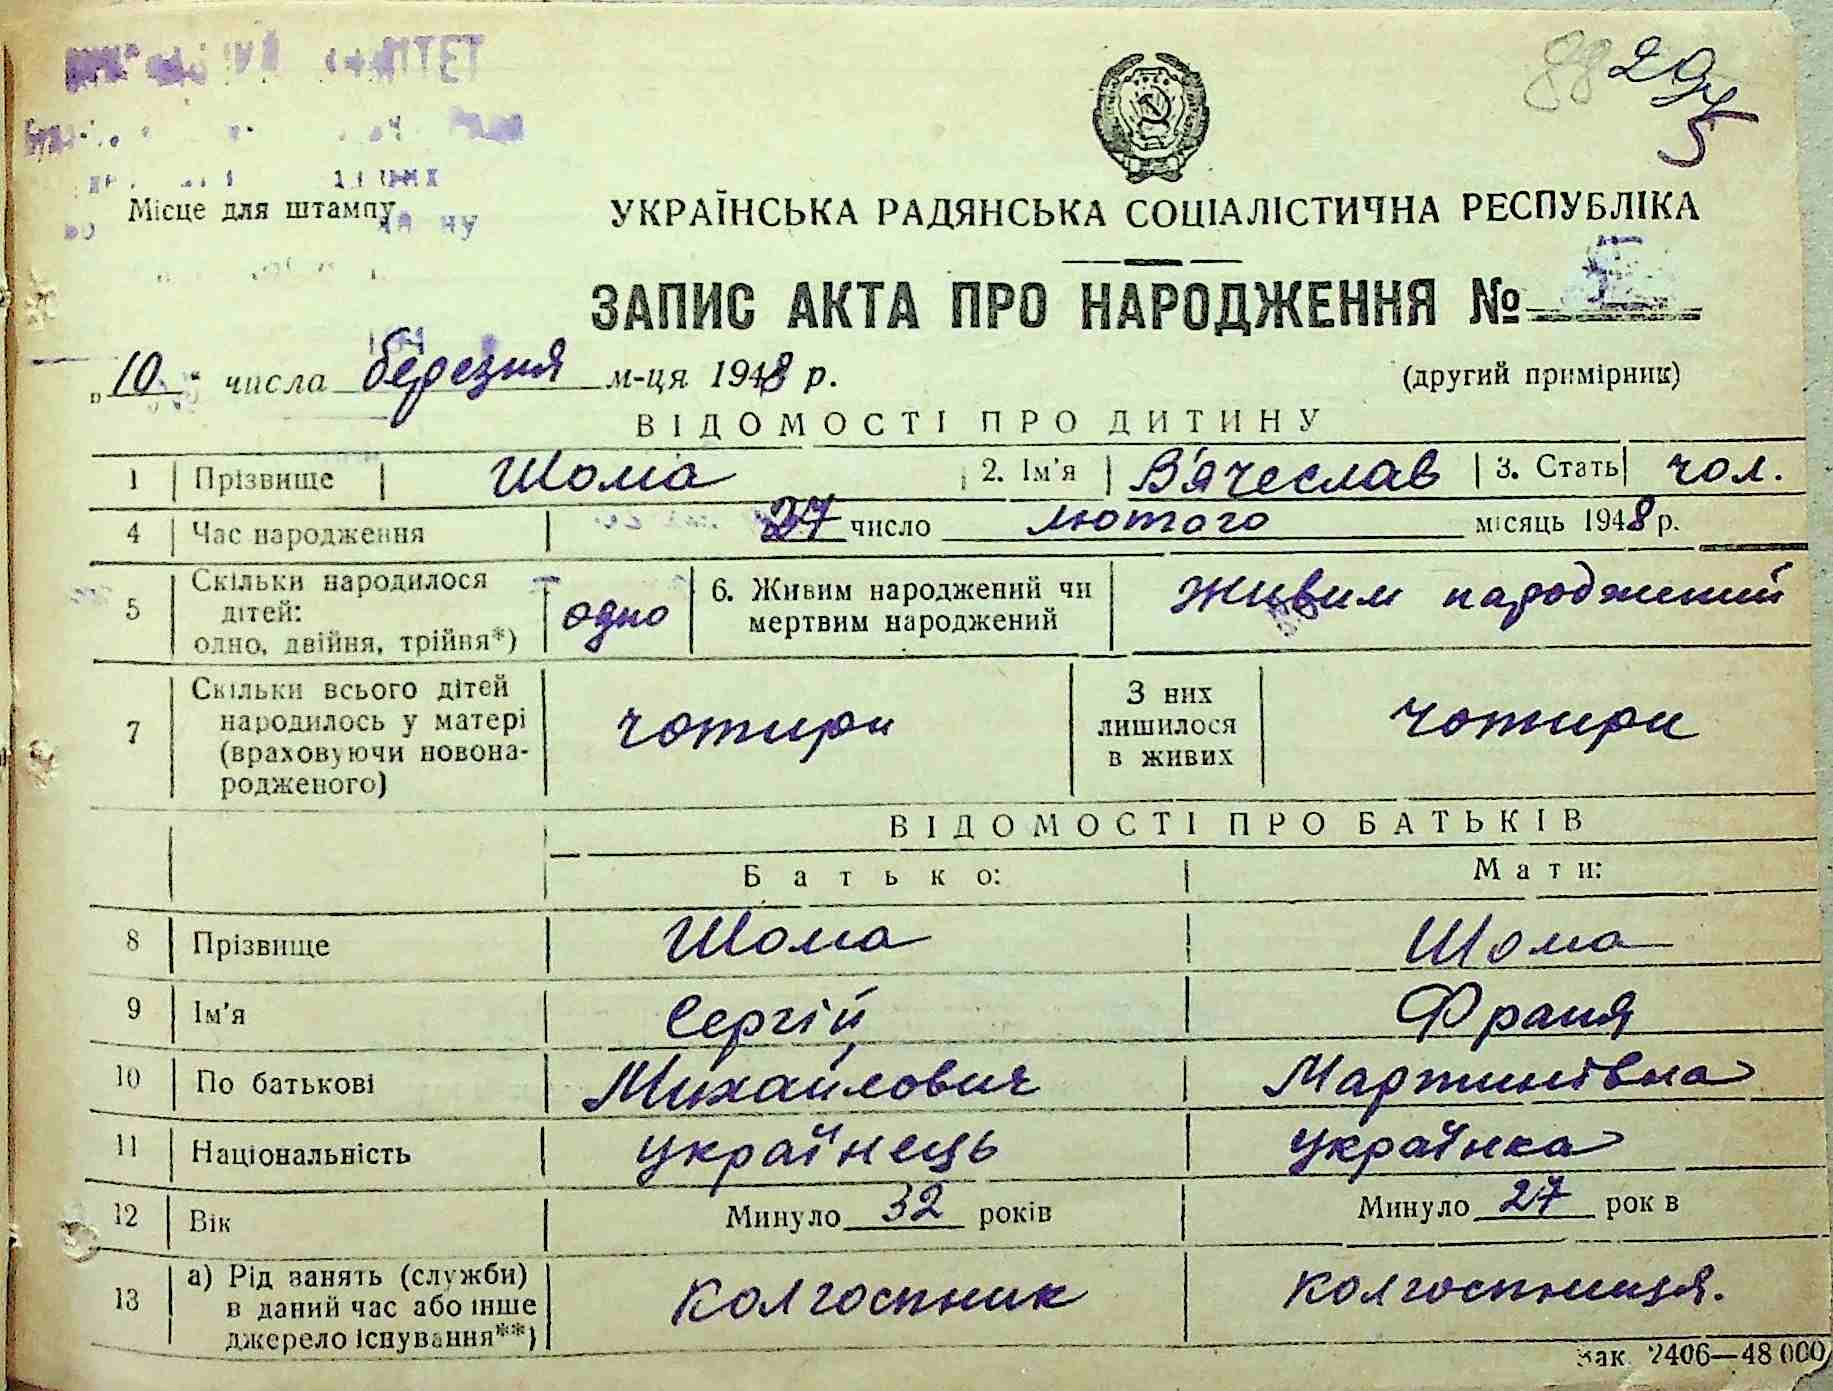 88 29
5
Місце для штампу
УКРАЇНСЬКА РАДЯНСЬКА СОЦІАЛІСТИЧНА РЕСПУБЛІКА
ЗАПИС АКТА ПРО НАРОДЖЕННЯ №
„10" числа березня м-ця 1948 р.
(другий примірник)
ВІДОМОСТІ ПРО ДИТИНУ
1 Прізвище Шома 2. Ім'я В'ячеслав 3. Стать чол.
4 Час народження 27 число лютого місяць 1948 р.
5 Скільки народилося дітей: одно, двійня, трійня*) одно 6. Живим народжений чи мертвим народжений Живим народжений
7 Скільки всього дітей народилось у матері (враховуючи новонародженого) чотири З них лишилося в живих чотири
ВІДОМОСТІ ПРО БАТЬКІВ
Батько: Мати:
8 Прізвище Шома Шома
9 Ім'я Сергій Франя
10 По батькові Михайлович Мартинівна
11 Національність українець українка
12 Вік Минуло 32 років Минуло 27 рок в
13 а) Рід занять (служби) в даний час або інше джерело існування**) Колгоспник Колгоспниця.
Зак. 2406—48 000